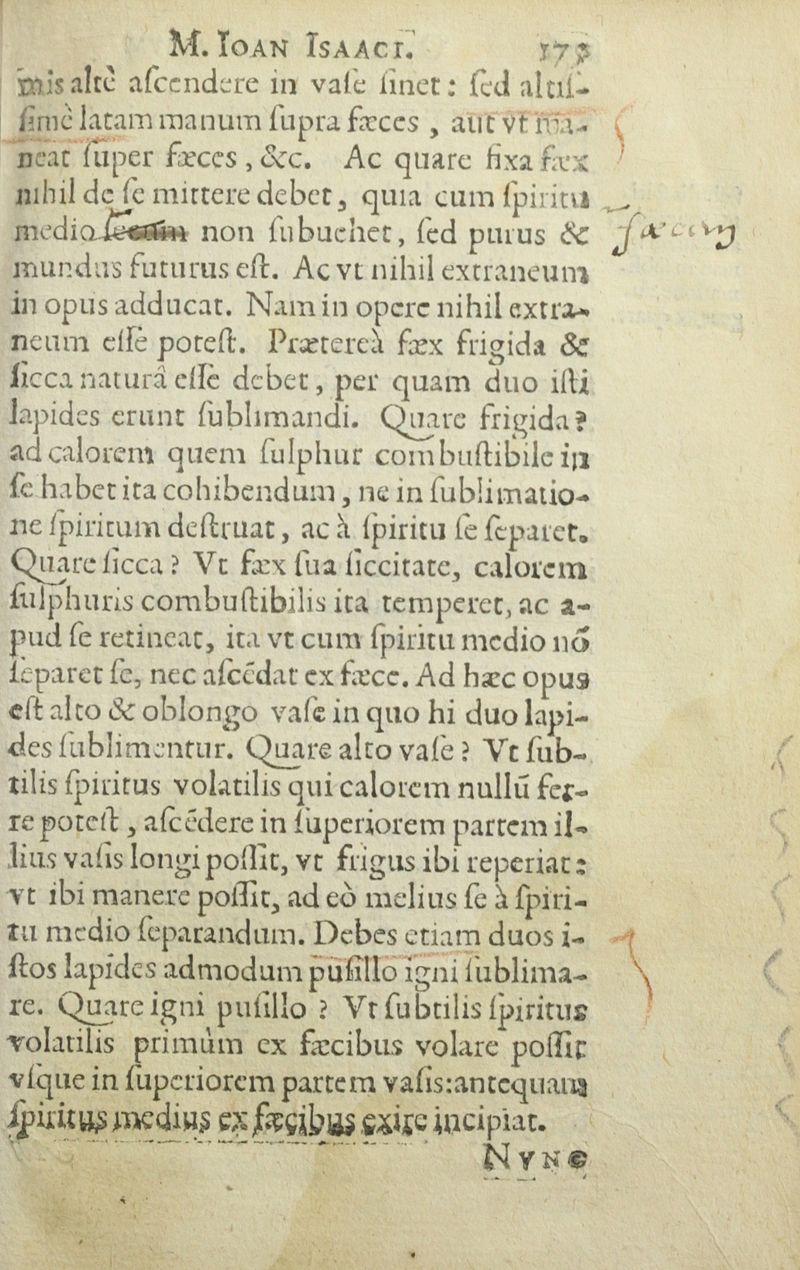 M. IOAN ISAACI. 175
mis altè aſcendere in vaſe ſinet: ſed altiſ-
ſimè latam manum ſupra fæces, aut vt ma-
neat ſuper fæces, &c. Ac quare fixa fæx
nihil de ſe mittere debet, quia cum ſpiritu
medio non ſubuehet, ſed purus & fæcem
mundus futurus eſt. Ac vt nihil extraneum
in opus adducat. Nam in opere nihil extra-
neum eſſe poteſt. Prætereà fæx frigida &
ſicca naturâ eſſe debet, per quam duo iſti
lapides erunt ſublimandi. Quare frigida?
ad calorem quem ſulphur combuſtibile in
ſe habet ita cohibendum, ne in ſublimatio-
ne ſpiritum deſtruat, ac à ſpiritu ſe ſeparet.
Quare ſicca? Vt fæx ſua ſiccitate, calorem
ſulphuris combuſtibilis ita temperet, ac a-
pud ſe retineat, ita vt cum ſpiritu medio nõ
ſeparet ſe, nec aſcẽdat ex fæce. Ad hæc opus
eſt alto & oblongo vaſe in quo hi duo lapi-
des ſublimentur. Quare alto vaſe? Vt ſub-
tilis ſpiritus volatilis qui calorem nullũ fer-
re poteſt, aſcẽdere in ſuperiorem partem il-
lius vaſis longi poſſit, vt frigus ibi reperiat:
vt ibi manere poſſit, ad eò melius ſe à ſpiri-
tu medio ſeparandum. Debes etiam duos i-
ſtos lapides admodum puſillo igni ſublima-
re. Quare igni puſillo? Vt ſubtilis ſpiritus
volatilis primùm ex fæcibus volare poſſit
vſque in ſuperiorem partem vaſis:antequam
ſpiritus medius ex fæcibus exire incipiat.
NVNC